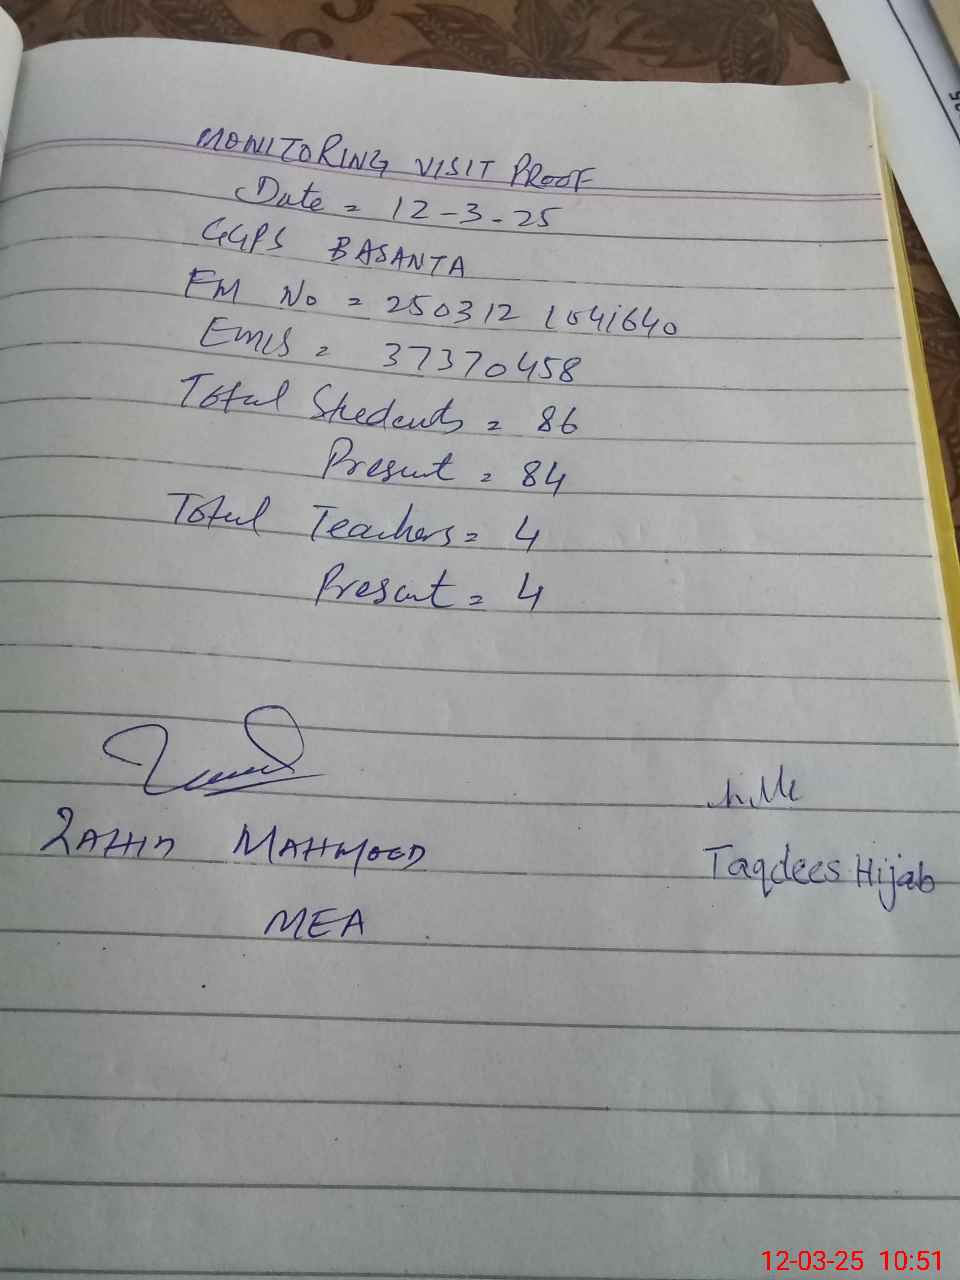 MONITORING VISIT PROOF
Date = 12-3-25
GGPS BASANTA
FM No = 250312 1041640
Emis = 37370458
Total Students = 86
Present = 84
Total Teachers = 4
Present = 4
MAHMOOD
Taqdees Hijab
MEA
12-03-25 10:51